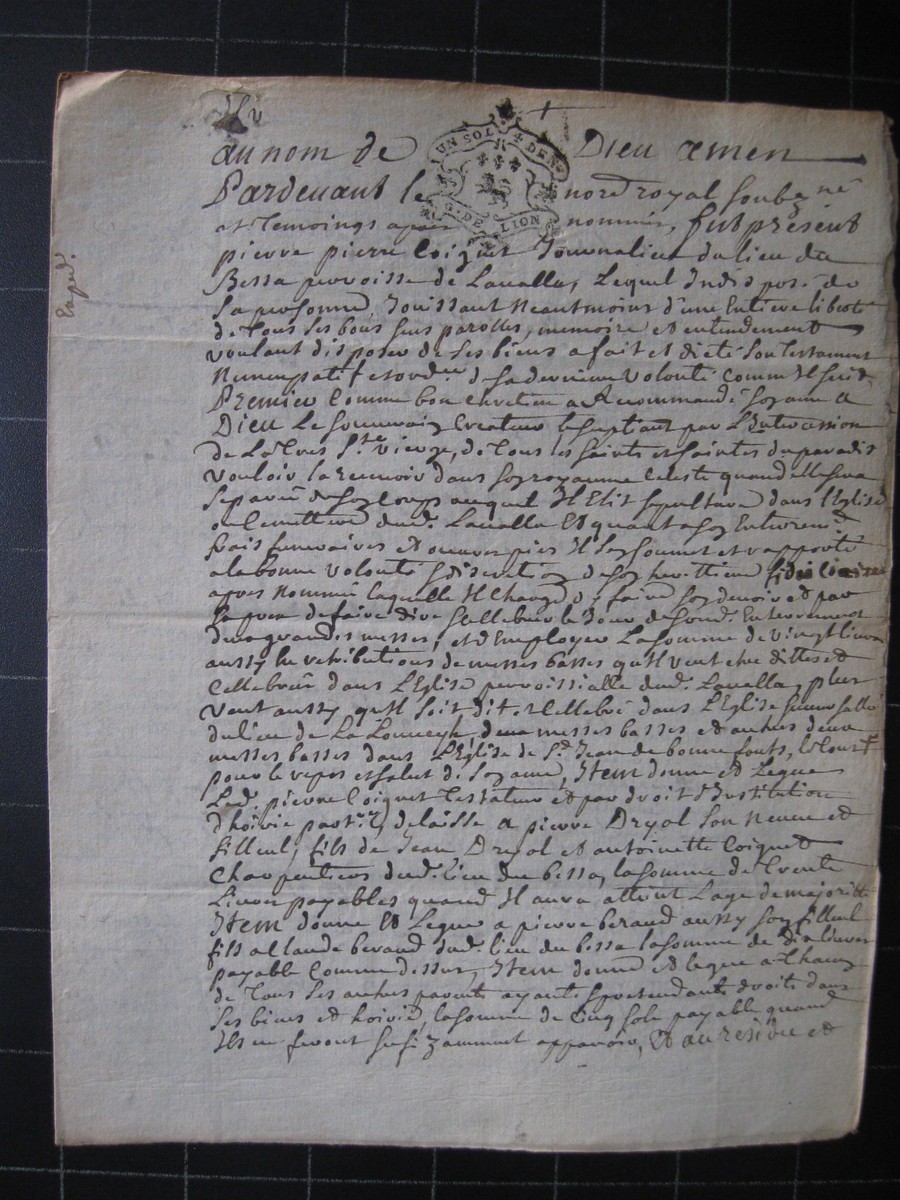 UN SOL 4 DEN
G. DE LION
Exped.
au nom de Dieu amen
Pardevant le nore royal soubzne
et Temoings apres nommés, fut présent
pierre pierre Coignet Journalier du lieu du
Bessa perroisse de Lavalla, Lequel Indisposé de
sa personne, Jouissant Neantmoins d'une Entiere liberté
de Tous ses bons sens parolles, memoire et entendement
voulant disposer de ses biens a fait et dicté son Testament
Nuncupatif et ordre de sa derniere volonté comme Il suit
Premier Comme bon chretien a Recommandé son ame a
Dieu Le souverain Createur le supliant par L'Intercession
de La Tres Ste vierge, de Tous les saints et saintes du paradis
vouloir la recevoir dans son royaume Celeste quand elle sera
separée de son Corps auquel Il Elit sepulture dans l'Eglise
ou Cemettiere dud. Lavalla Et quant a son Enterremt
frais funeraires et oeuvres pies Il s'en soumet et rapporte
a la bonne volonté discretion de son herittiere
apres Nommée laquelle Il Charge de faire son devoir et par
expres de faire dire Cellebrer le Jour de sond. Enterrement
deux grandes messes, et d'Employer La somme de vingt livres
aussy en retributions de messes basses qu'Il veut etre dittes et
Cellebrées dans L'Eglise perroissialle dud. Lavalla, plus
veut aussy qu'Il soit dit et Cellebré dans L'Eglise
du lieu de La deux messes basses et autres deux
messes basses dans L'Eglise de St. Jean de bonnefonts, le Tout
pour le repos et salut de son ame, Item donne et Legue
Led. pierre Coignet Testateur et par droit d'Institution
d'hoirie partre delaisse a pierre Dreyal son Neveu et
filleul, fils de Jean Dreyal et antoinette Coignet
Charpentiers dud. Lieu du bessa, la somme de Trente
Livres payables quand Il aura atteint L'age de majorité
Item donne Et Legue a pierre beraud aussy son filleul
fils a Claude beraud dud. lieu du bessa la somme de dix Livres
payable Comme dessus, Item donne et legue a Chacun
de Tous ses autres parents ayants pretendants droits dans
ses biens et hoirie, la somme de Cinq sols payable quand
Ils en feront sufizamment apparoir, Et au residu et